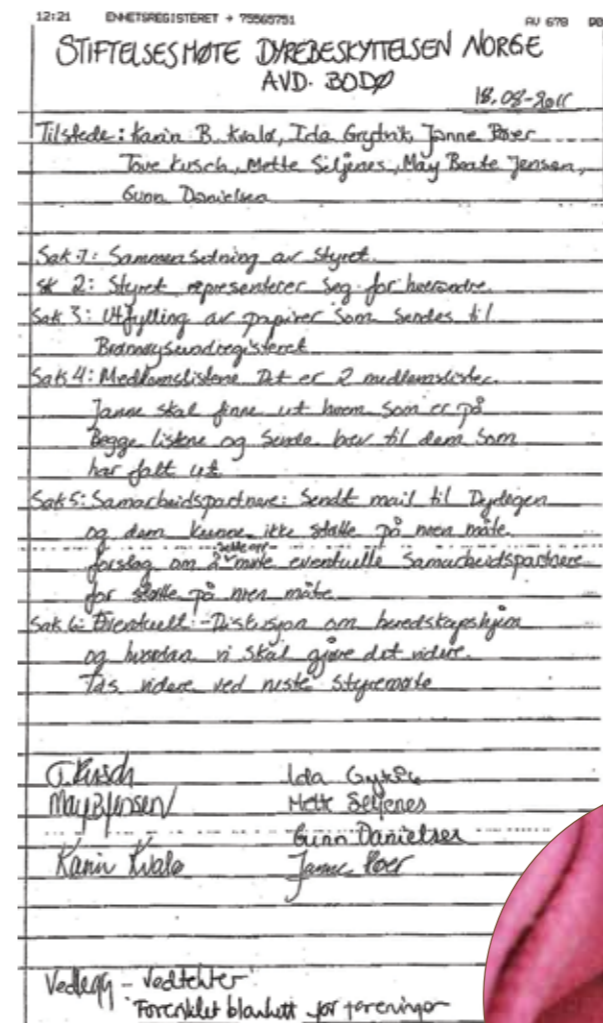 12:21 ENHETSREGISTERET → 75565751 AV 678
STIFTELSESMØTE DYREBESKYTTELSEN NORGE
AVD. BODØ
18.08-2011
Tilstede: Karin B. Kvalø, Ida Janne
Tove Kirsch, Mette Siljenes, May Beate Jensen,
Gunn Danielsen
Sak 1: Sammensetning av styret.
Sk 2: Styret representerer seg for hverandre.
Sak 3: Utfylling av papirer som sendes til
Brønnøysundregisteret
Sak 4: Medlemslistene. Det er 2 medlemslister.
Janne skal finne ut hvem som er på
Begge listene og sende brev til dem som
har falt ut
Sak 5: Samarbeidspartnere: Sendt mail til
og dem kunne ikke støtte på noen måte.
forslag om å møte eventuelle Samarbeidspartnere
for støtte på noen måte
Sak 6: Eventuelt: - Diskusjon om beredskapshjem
og hvordan vi skal gjøre det videre.
Tas videre ved neste styremøte
T. Kirsch Ida
May B Jensen Mette Seljenes
Gunn Danielsen
Karin Kvalø Janne
Vedlegg - Vedtekter
Forenklet blankett for foreninger